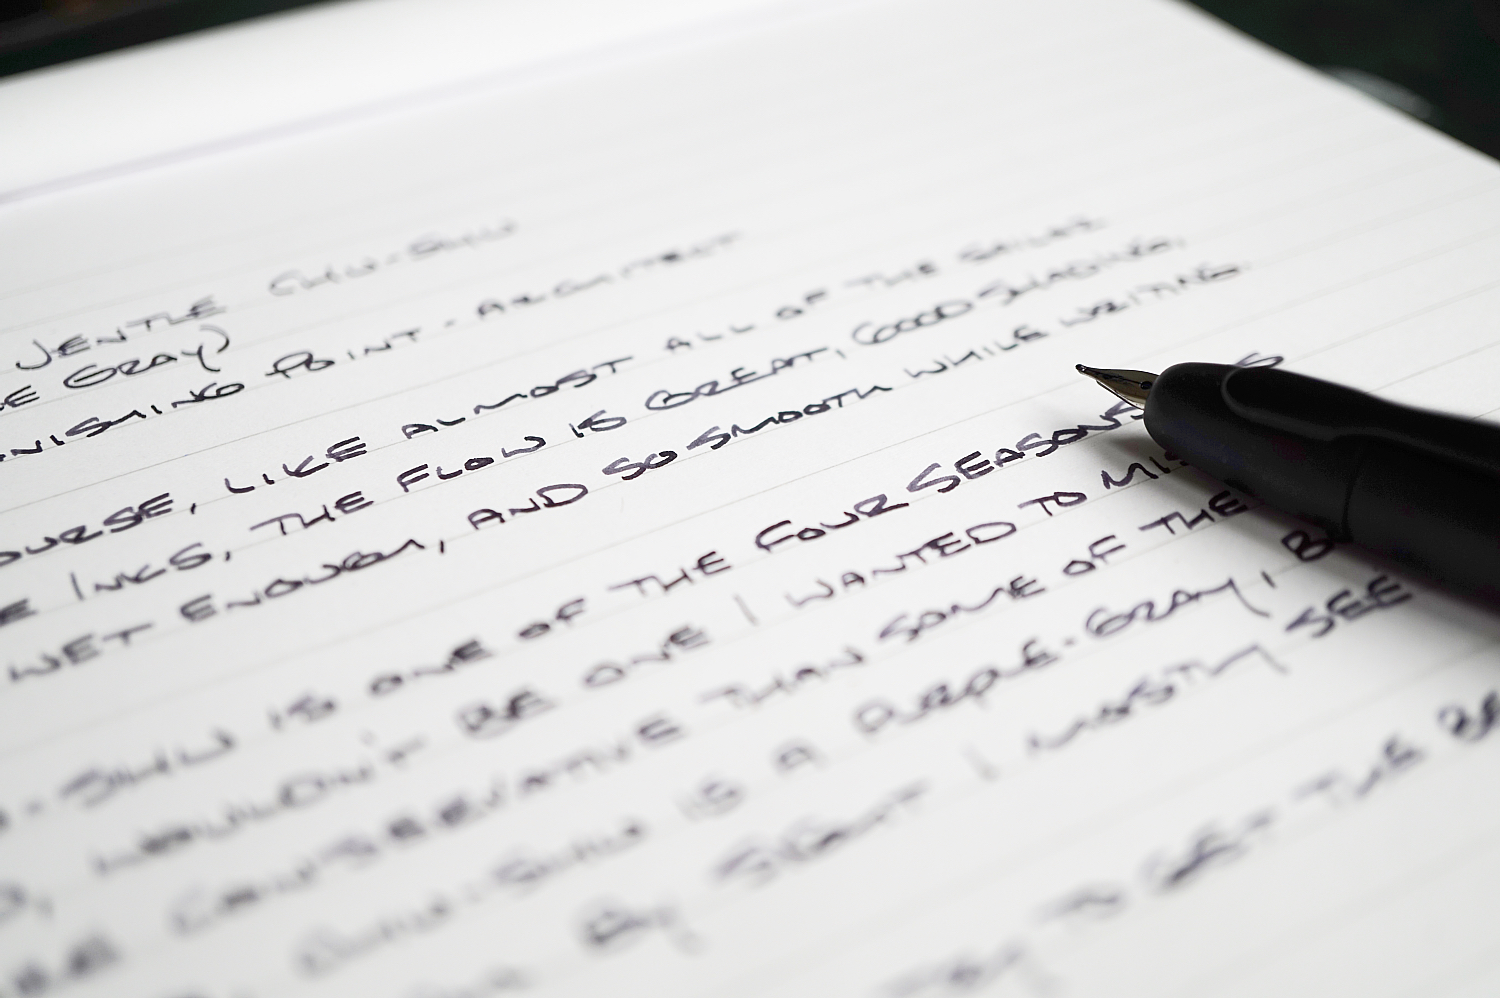 JENTLE CHU-SHU
GRAY)
POINT - ARCHITECT
LIKE ALMOST ALL OF THE SAILOR
INKS, THE FLOW IS GREAT, GOOD SHADING,
WET ENOUGH, AND SO SMOOTH WHILE WRITING.
-SHU IS ONE OF THE FOUR SEASONS
WOULDN'T BE ONE I WANTED TO
CONSERVATIVE THAN SOME OF THE
CHU-SHU IS A PURPLE-GRAY,
BY SIGHT I MOSTLY SEE
TO GET THE